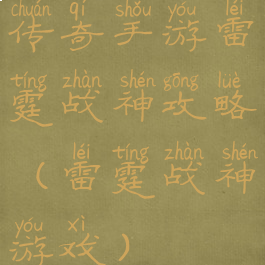 chuán qí shǒu yóu léi
传奇手游雷
tíng zhàn shén gōng lüè
霆战神攻略
léi tíng zhàn shén
（雷霆战神
yóu xì
游戏）